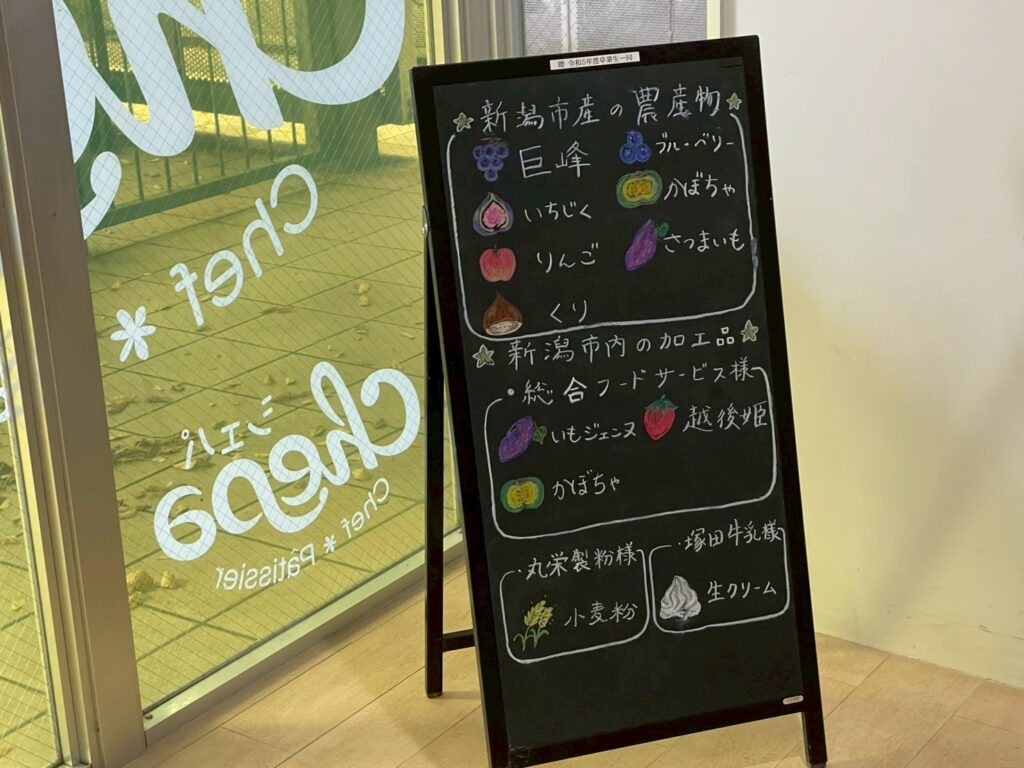 贈 令和5年度卒業生一同
新潟市産の農産物
巨峰
ブルーベリー
いちじく
かぼちゃ
りんご
さつまいも
くり
新潟市内の加工品
・総合フードサービス様
いもジェンヌ
越後姫
かぼちゃ
・丸栄製粉様
小麦粉
・塚田牛乳様
生クリーム
Chef *
シェパ
chepa
Chef * Pâtissier